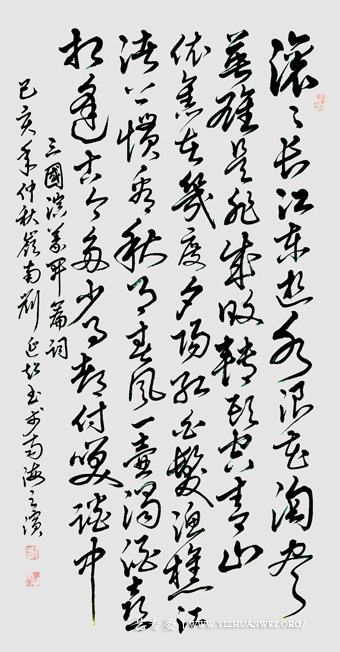 滚〻长江东逝水浪花淘尽
英雄是非成败轉头空青山
依旧在幾度夕阳红白髮渔樵江
渚上惯看秋月春风一壶浊酒喜
相逢古今多少事都付笑谈中
三國演義開篇词
己亥年仲秋嶺南刘延书於南海之濱
WWW.YIZHUANWEI.ORG/